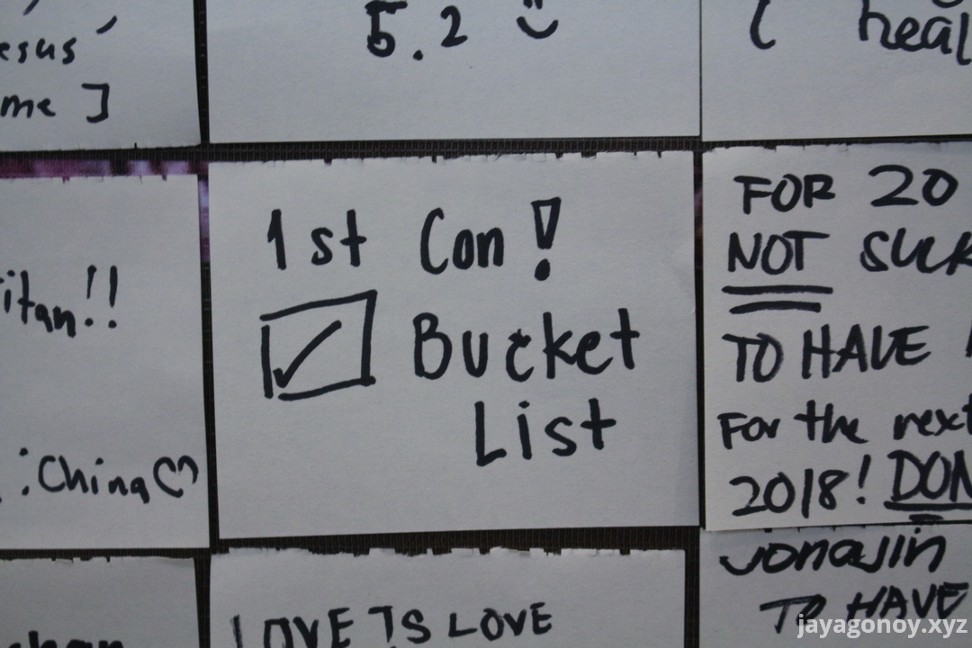 esus'
me ]
5.2 :)
( heal
itan!!
:China♡
1st Con!
☑ Bucket
List
FOR 20
NOT SUCK
TO HAVE
For the next
2018! DON
LOVE IS LOVE
jonajin
TO HAVE
jayagonoy.xyz